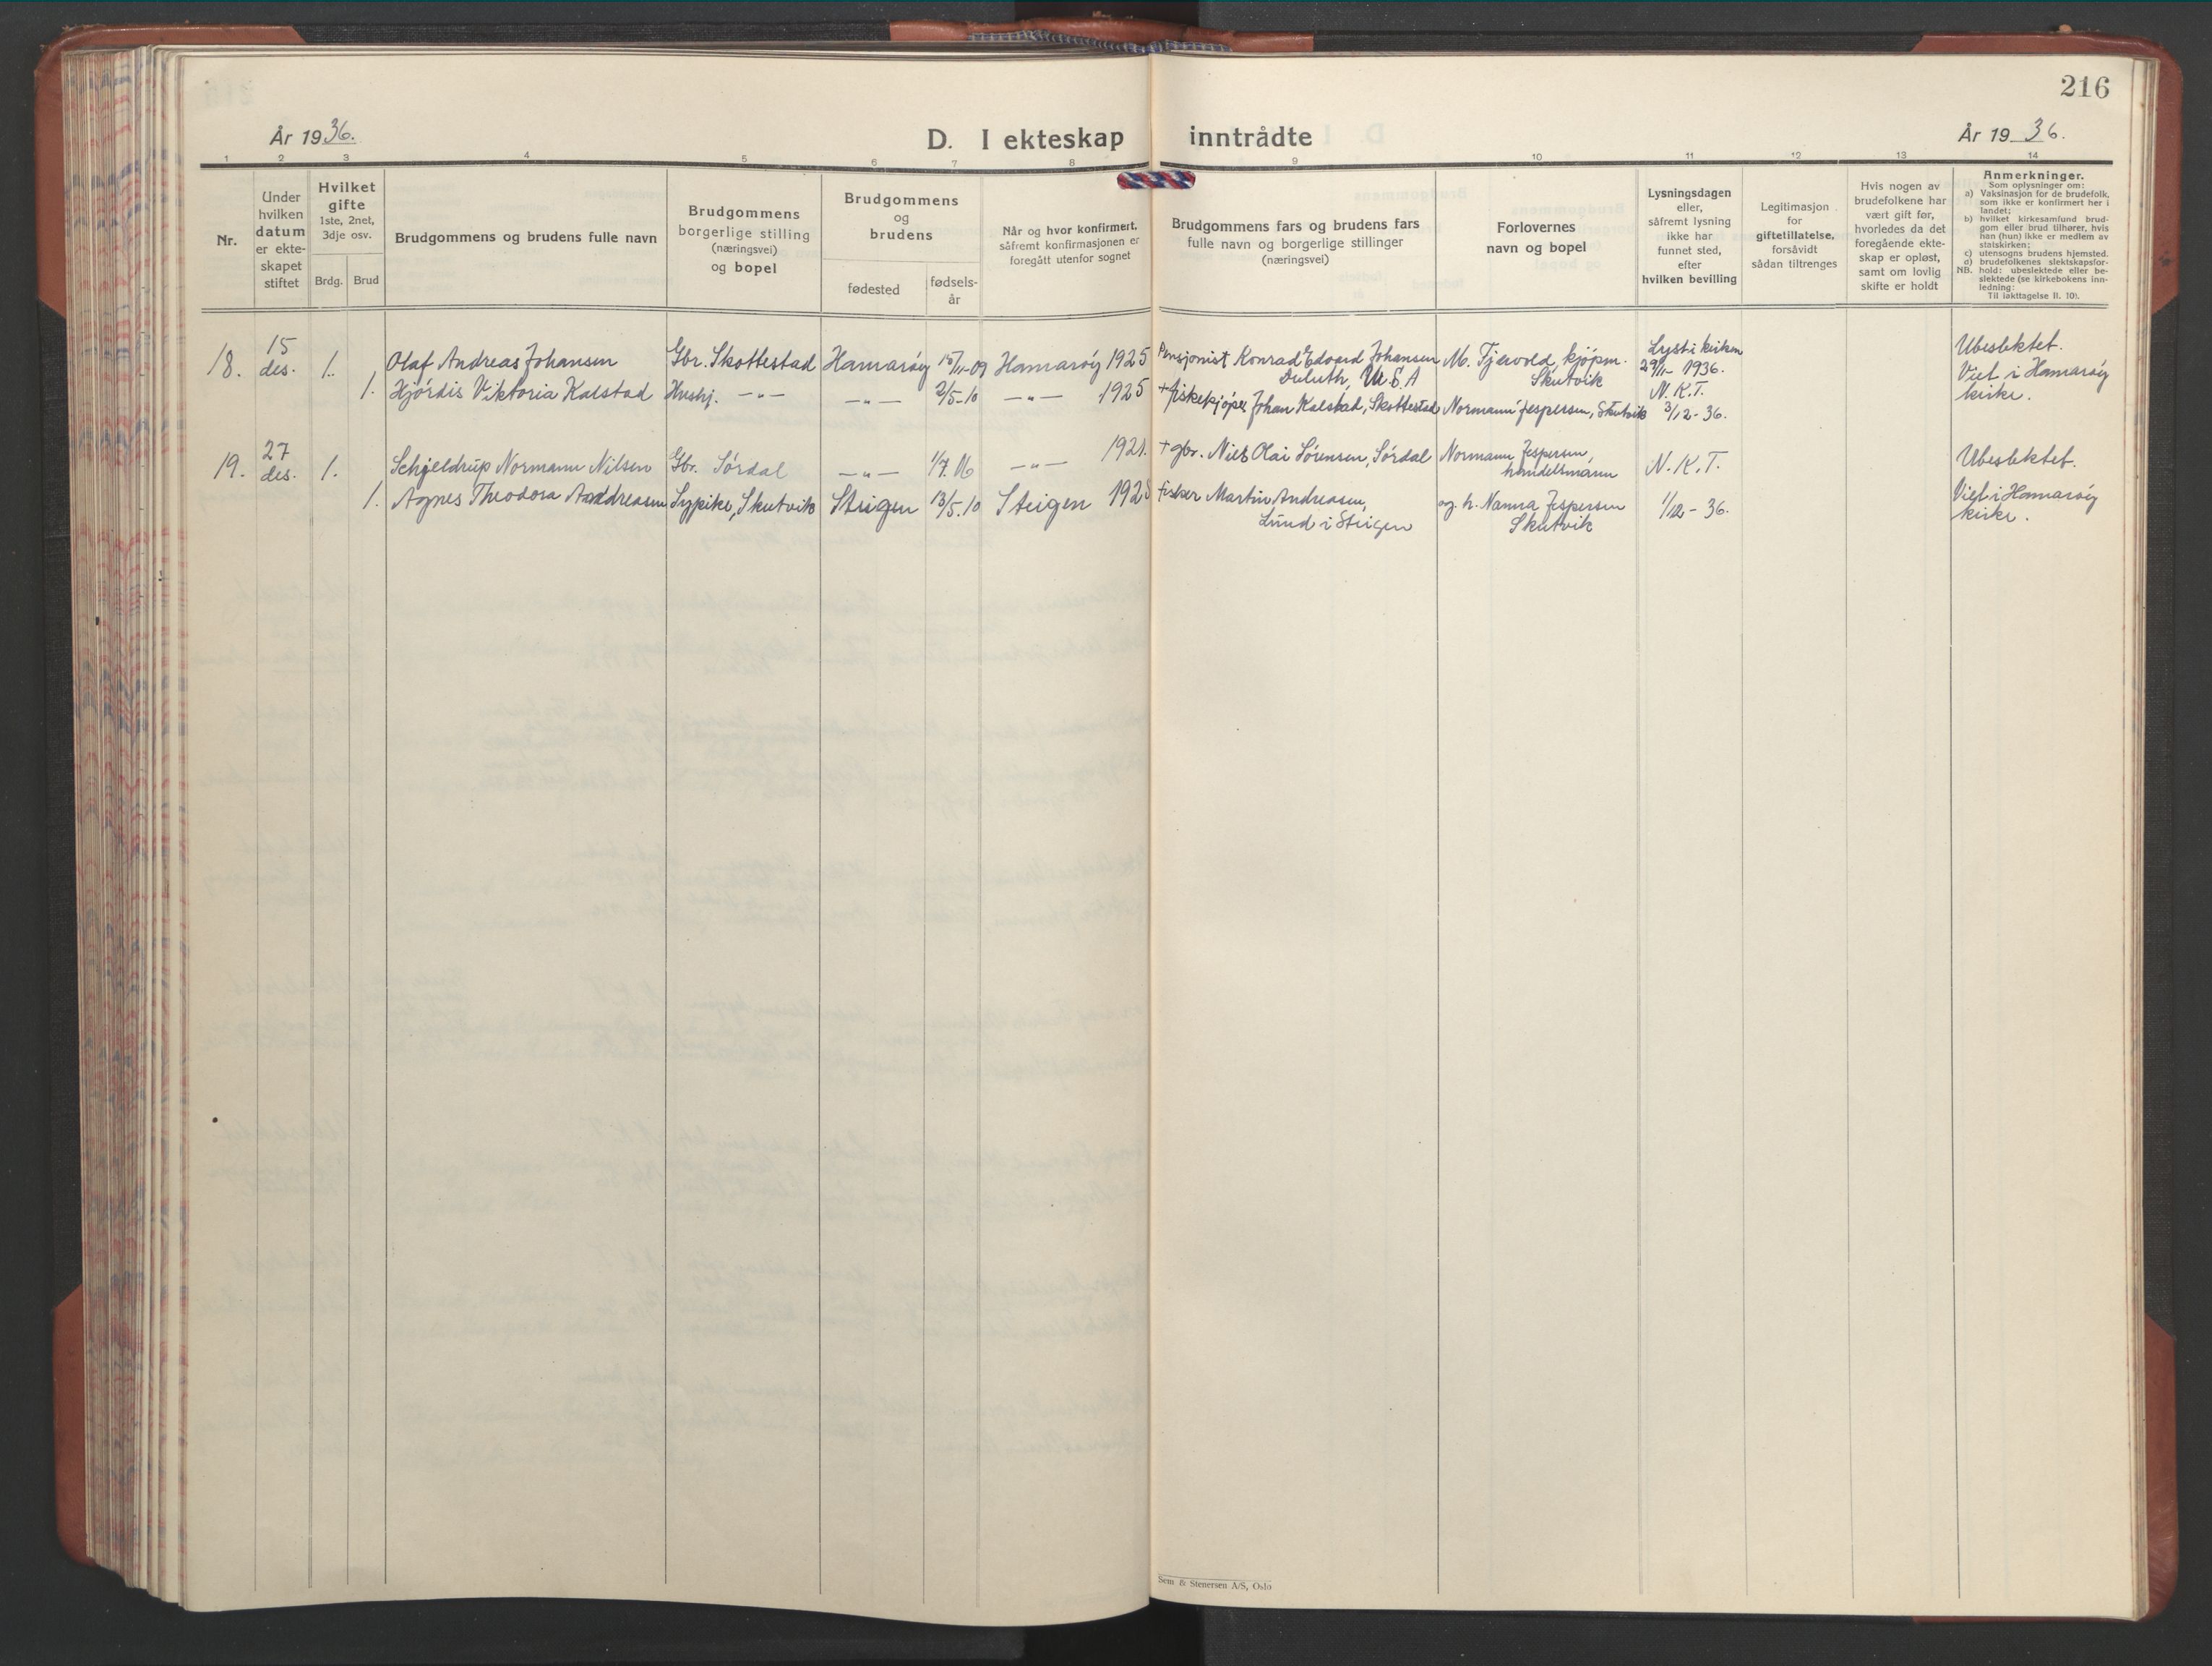 216
År 1936.
D. I ekteskap inntrådte
År 1936.
1 2 3 4 5 6 7 8 9 10 11 12 13 14
Nr.
Under
hvilken
datum
er ekte-
skapet
stiftet
Hvilket
gifte
1ste, 2net,
3dje osv.
Brdg. Brud
Brudgommens og brudens fulle navn
Brudgommens
borgerlige stilling
(næringsvei)
og bopel
Brudgommens
og
brudens
fødested
fødsels-
år
Når og hvor konfirmert,
såfremt konfirmasjonen er
foregått utenfor sognet
Brudgommens fars og brudens fars
fulle navn og borgerlige stillinger
(næringsvei)
Forlovernes
navn og bopel
Lysningsdagen
eller,
såfremt lysning
ikke har
funnet sted,
efter
hvilken bevilling
Legitimasjon
for
giftetillatelse,
forsåvidt
sådan tiltrenges
Hvis nogen av
brudefolkene har
vært gift før,
hvorledes da det
foregående ekte-
skap er opløst,
samt om lovlig
skifte er holdt
Anmerkninger.
Som oplysninger om:
a) Vaksinasjon for de brudefolk,
som ikke er konfirmert her i
landet;
b) hvilket kirkesamfund brud-
gom eller brud tilhører, hvis
han (hun) ikke er medlem av
statskirken;
c) utensogns brudens hjemsted.
d) brudefolkenes slektskapsfor-
NB. hold: ubeslektede eller be-
slektede (se kirkebokens inn-
ledning:
Til iakttagelse II. 10).
18. 15 des. 1. Olaf Andreas Johansen Gbr. Skottestad Hamarøy 15/11-09 Hamarøy 1925 Pensjonist Konrad Edvard Johansen M. Tjervold, kjøpm. Lyst i kirken Ubeslektet.
Duluth, U.S.A Skutvik 29/11-1936. Viet i Hamarøy
1. Hjørdis Viktoria Kalstad Hushj. -"- -"- 2/5-10 -"- 1925 + fiskekjøper Johan Kalstad, Skottestad Normann Jespersen, Skutvik N.K.T. kirke.
3/12-36.
19. 27 des. 1. Schjeldrup Normann Nilsen Gbr. Sørdal -"- 1/7.06 -"- 1921. + gbr. Niels Olai Sørensen, Sørdal Normann Jespersen, N.K.T. Ubeslektet.
handelsmann
1. Agnes Theodora Andreasen Sypike, Skutvik Steigen 13/5.10 Steigen 1925 fisker Martin Andreasen, og h. Nanna Jespersen 1/12-36. Viet i Hamarøy
Lund i Steigen Skutvik kirke.
Sem & Stenersen A/S, Oslo